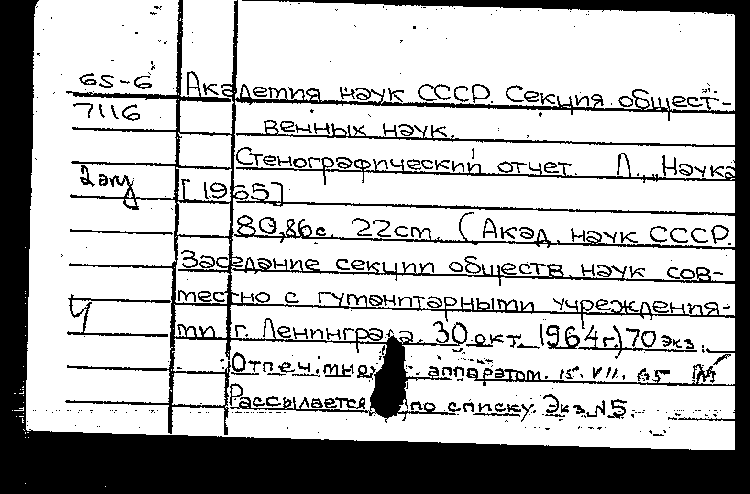 65-6 Академия наук СССР. Секция общест-
7116 венных наук.
Стенографический отчет. Л., „Наука
2 экз [1965]
80,86с. 22см. (Акад. наук СССР.
Заседание секции обществ. наук сов-
местно с гуманитарными учреждения-
ми г. Ленинграда. 30 окт. 1964г.) 70 экз.
Отпеч. множ. аппаратом. 15.VII.65
Рассылается по списку. Экз. №5.